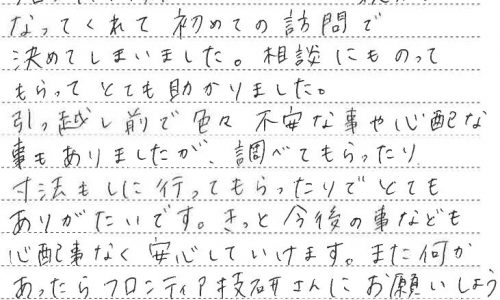 なってくれて 初めての訪問で
決めてしまいました。相談にものって
もらってとても助かりました。
引っ越し前で色々 不安な事や心配な
事もありましたが、調べてもらったり
寸法もしに行ってもらったりでとても
ありがたいです。きっと今後の事なども
心配事なく安心していけます。また何か
あったらフロンティア技研さんにお願いしよう